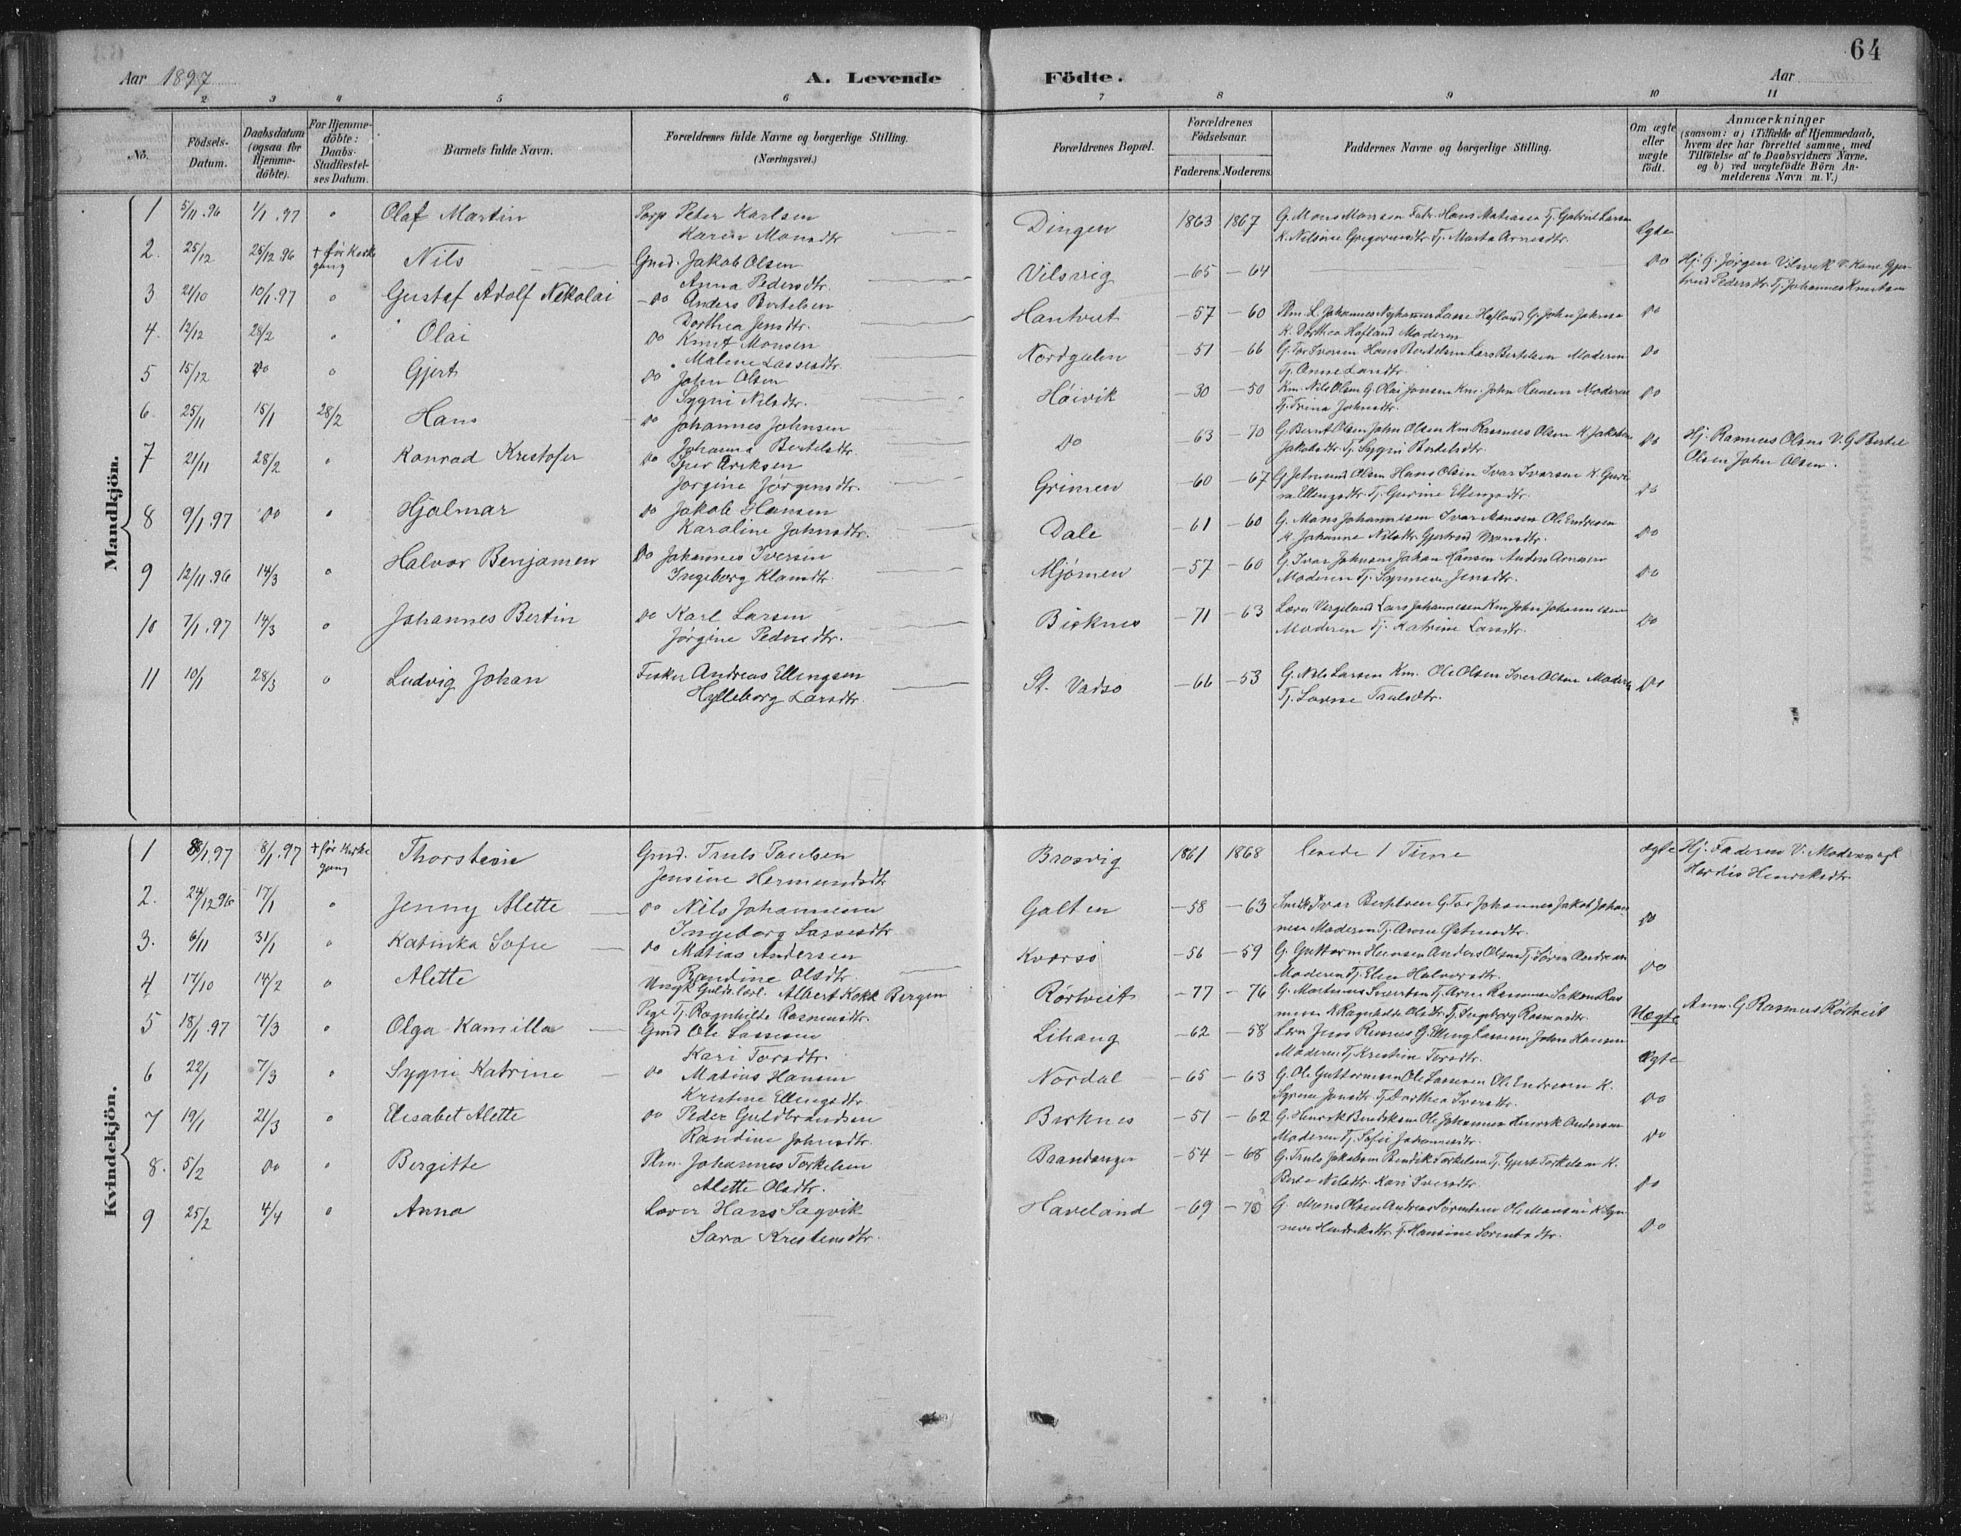 64
Aar 1897 A. Levende Födte. Aar
2 3 4 5 6 7 8 9 10 11
No. Födsels-Datum. Daabsdatum (ogsaa for Hjemmedöbte). For Hjemmedöbte: Daabs-Stadfæstelses Datum. Barnets fulde Navn. Forældrenes fulde Navne og borgerlige Stilling. (Næringsvei.) Forældrenes Bopæl. Forældrenes Födselsaar. Faderens. Moderens. Faddernes Navne og borgerlige Stilling. Om ægte eller uægte födt. Anmærkninger (saasom: a) i Tilfælde af Hjemmedaab, hvem der har forrettet samme, med Tilföielse af to Daabsvidners Navne, og b) ved uægtefödte Börn Anmelderens Navn m. V.)
Mandkjön.
1 5/11.96 1/1.97 " Olaf Martin Peter Karlsen Dingen 1863 1867 G. Mons Monsen Hans Matiasen Tj. Gabriel Larsen Ægte
Karen Monsdtr. Tj. Marta Arnesdtr.
2. 25/12 25/12 96 + før Kirkegang Nils Gmd. Jakob Olsen Vilsvig -65 -64 Do Hj. G. Jørgen Vilsvik V. Kone Gjertrud Pedersdtr. Tj. Johannes Knutsen
Anna Pedersdtr.
3 21/10 10/1.97 " Gustaf Adolf Nikolai Do Anders Bertelsen Hantveit -57 -60 Do
Dorthea Jensdtr. K. Dorthea Hofland Moderen
4. 12/12 28/2 " Olai Do Knut Monsen Nordgulen -51 -66 G. Tor Iversen Hans Bertelsen Lars Bertelsen Moderen Do
Malene Lassesdtr.
5 15/12 Do " Gjert Do John Olsen Høivik -30 -50 Km. Nils Olsen G. Olai Jonsen Km. John Hansen Moderen Do
Sygni Nilsdtr. Tj. Trina Johnsdtr.
6. 25/11 15/1 28/2 Hans Do Johannes Johnsen Do -63 -70 G. Bernt Olsen John Olsen Km Rasmus Olsen Do Hj. Rasmus Olsen V. G. Bertel Olsen John Olsen.
Johanna Bertelsdtr. Tj. Sygni Bertelsdtr.
7 21/11 28/2 " Konrad Kristofer Do Iver Eriksen Grimen -60 -67 Olsen Hans Olsen Ivar Ivarsen Do
Jørgine Jørgensdtr. Ellingsdtr. Tj. Gurine Ellingsdtr.
8 9/1.97 Do " Hjalmar Do Jakob Hansen Dale -61 -60 G. Mons Johannesen Ivar Monsen Ole Endresen Do
Karoline Johnsdtr. K. Johanne Nilsdtr. Gjertrud Monsdtr.
9 12/11.96 14/3 " Halvor Benjamen Do Johannes Iversen Mjømen -57 -60 G. Ivar Johnsen Johan Hansen Anders Arnesen Do
Ingeborg Klausdtr. Moderen Tj. Synneve Jensdtr.
10 7/1.97 14/3 " Johannes Bertin Do Karl Larsen Birknes -71 -63 Lærer Vergeland Lars Johannesen Km John Johannesen Do
Jørgine Pedersdtr. Moderen Tj. Katrine Larsdtr.
11 10/1 28/3 " Ludvig Johan Fisker Andreas Ellingsen St. Vadsø -66 -53 G. Nils Larsen Km. Ole Olsen Iver Olsen Moderen Do
Hylleborg Larsdtr. Tj. Lovise Paulsdtr.
Kvindekjön.
1 8/1.97 8/1.97 + før Kirkegang Thorstein Gmd. Truls Paulsen Brosvig 1861 1868 levede 1 Time ægte Hj. Faderen V. Moderen og Herdis Henriksdtr.
Jensine Hermundsdtr.
2. 24/12 96 17/1 " Jenny Alette Do Nils Johannesen Galten -58 -63 G. Tor Johannes Jakob Johannesen Do
Ingeborg Lassesdtr. Moderen Tj.
3. 6/11 31/1 " Katinka Sofie Do Matias Andersen Kversø -56 -59 G. Guttorm Hansen Anders Olsen Tj. Søren Andresen Do
Randine Olsdtr. Moderen Tj. Elen Halvorsdtr.
4 17/10 14/2 " Alette Ungk. Guldsl. Albert Kokk Bergen Rørtveit -77 -76 G. Martinus Sivertsen Tj. Arne Rasmusen Uægte Anm. G. Rasmus Rørtveit
Pige Tj. Ragnhilde Rasmusdtr. K. Ragnhilde Olsdtr. Tj. Ingeborg Rasmusdtr.
5 18/1.97 7/3 " Olga Kamilla Gmd Ole Lassesen Lihaug -62 -58 G. Elling Lassesen John Hansen ægte
Kari Torsdtr. Moderen Tj. Kristine Torsdtr.
6 22/1 7/3 " Sygni Katrine Do Matias Hansen Nordal -65 -63 G. Ole Guttormsen Ole Lassesen Ole Endresen K. Do
Kristine Ellingsdtr. Tj. Dorthea Iversdtr.
7 19/1 21/3 " Elisabet Alette Do Peder Guldbrandsen Birknes -51 -62 G. Henrik Bendiksen Ole Johannesen Henrik Andersen Do
Randine Johnsdtr. Moderen Tj. Sofie Johannesdtr.
8. 5/2 Do " Bergitte Plm. Johannes Torkelsen Brandanger -54 -68 G. Truls Jakobsen Bendik Torkelsen Tj. Gjert Torkelsen K. Do
Alette Olsdtr. Nilsdtr. Kari Iversdtr.
9 25/2 4/4 " Anna Lærer Hans Sagvik Haveland -69 -70 G. Mons Olsen Andreas Sørensen Ole Monsen K. Synneve Henriksdtr. Tj. Hansine Sørensdtr. Do
Sara Kristensdtr.